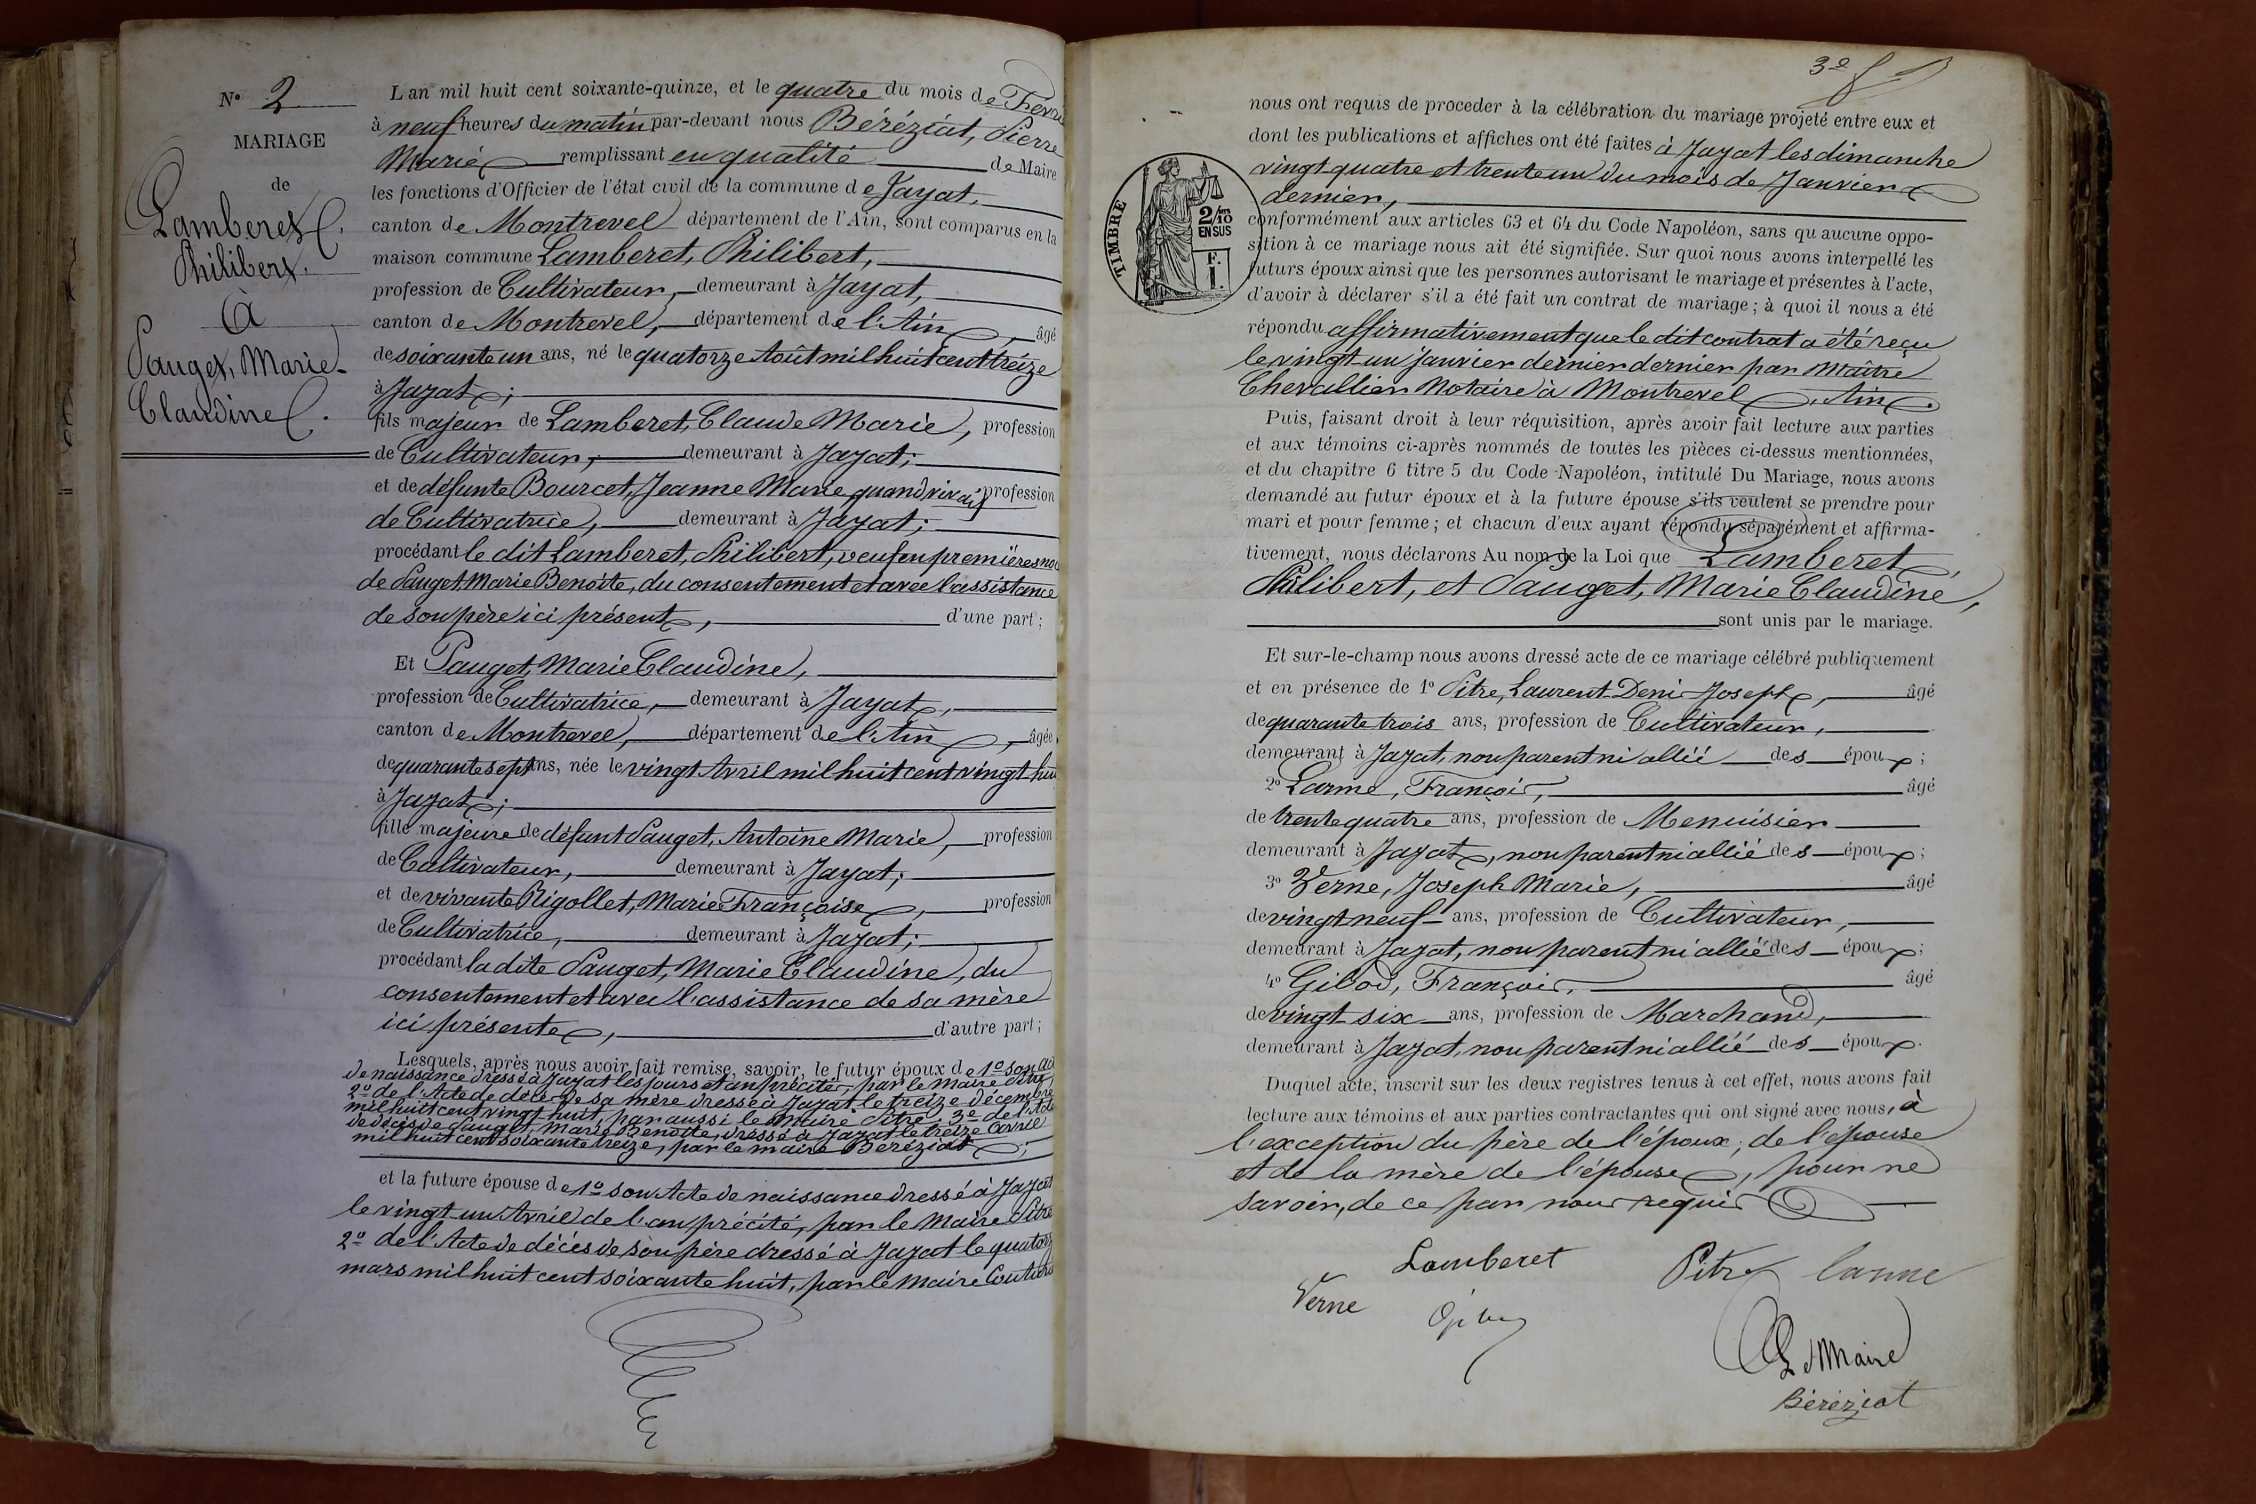 N° 2
MARIAGE
de
Lamberet
Philibert.
à
Pauget, Marie
Claudine.
L'an mil huit cent soixante-quinze, et le quatre du mois de Fevrier
à neuf heures du matin par-devant nous Béréziat, Pierre
Marie remplissant en qualité de Maire
les fonctions d'Officier de l'état civil de la commune de Jayat,
canton de Montrevel département de l'Ain, sont comparus en la
maison commune Lamberet, Philibert,
profession de Cultivateur, demeurant à Jayat,
canton de Montrevel, département de l'Ain, âgé
de soixante un ans, né le quatorze Août mil huit cent treize
à Jayat;
fils majeur de Lamberet, Claude Marie, profession
de Cultivateur, demeurant à Jayat;
et de défunte Bourcet, Jeanne Marie quand vivait profession
de Cultivatrice, demeurant à Jayat;
procédant le dit Lamberet, Philibert, veuf en premières
de Pauget Marie Benoite, du consentement et avec l'assistance
de son père ici présent, d'une part;
Et Pauget, Marie Claudine,
profession de Cultivatrice, demeurant à Jayat,
canton de Montrevel, département de l'Ain, âgée
de quarante sept ans, née le vingt Avril mil huit cent vingt huit
à Jayat;
fille majeure de défunt Pauget, Antoine Marie, profession
de Cultivateur, demeurant à Jayat;
et de vivante Rigollet, Marie Françoise, profession
de Cultivatrice, demeurant à Jayat;
procédant la dite Pauget, Marie Claudine, du
consentement et avec l'assistance de sa mère
ici présente, d'autre part;
Lesquels, après nous avoir fait remise, savoir, le futur époux de 1° son
de naissance dressé à Jayat les jours et an précités, par le maire Pitre,
2° de l'Acte de décès de sa mère dressé à Jayat le treize décembre
mil huit cent vingt huit, par aussi le maire Pitre 3° de l'Acte
de décès de Pauget, Marie Benoite, dressé à Jayat le treize Avril
mil huit cent soixante treize, par le maire Béréziat;
et la future épouse de 1° son Acte de naissance dressé à Jayat
le vingt un Avril de l'an précité, par le Maire Pitre
2° de l'Acte de décès de son père dressé à Jayat le quatorze
mars mil huit cent soixante huit, par le maire
nous ont requis de proceder à la célébration du mariage projeté entre eux et
dont les publications et affiches ont été faites à Jayat les dimanche
vingt quatre et trente un du mois de Janvier
dernier,
TIMBRE 2/10 EN SUS F. I.
conformément aux articles 63 et 64 du Code Napoléon, sans qu'aucune oppo-
sition à ce mariage nous ait été signifiée. Sur quoi nous avons interpellé les
futurs époux ainsi que les personnes autorisant le mariage et présentes à l'acte,
d'avoir à déclarer s'il a été fait un contrat de mariage; à quoi il nous a été
répondu affirmativement que le dit contrat a été reçu
le vingt un janvier dernier dernier par Maître
Chevallier Notaire à Montrevel, Ain.
Puis, faisant droit à leur réquisition, après avoir fait lecture aux parties
et aux témoins ci-après nommés de toutes les pièces ci-dessus mentionnées,
et du chapitre 6 titre 5 du Code Napoléon, intitulé Du Mariage, nous avons
demandé au futur époux et à la future épouse s'ils veulent se prendre pour
mari et pour femme; et chacun d'eux ayant répondu séparément et affirma-
tivement, nous déclarons Au nom de la Loi que Lamberet,
Philibert, et Pauget, Marie Claudine,
sont unis par le mariage.
Et sur-le-champ nous avons dressé acte de ce mariage célébré publiquement
et en présence de 1° Pitre, Laurent Denis Joseph, âgé
de quarante trois ans, profession de Cultivateur,
demeurant à Jayat, non parent ni allié des époux;
2° Larme, François, âgé
de trente quatre ans, profession de Menuisier
demeurant à Jayat, non parent ni allié des époux;
3° Verne, Joseph Marie, âgé
de vingt neuf ans, profession de Cultivateur,
demeurant à Jayat, non parent ni allié des époux;
4° Gibod, François, âgé
de vingt six ans, profession de Marchand,
demeurant à Jayat, non parent ni allié des époux.
Duquel acte, inscrit sur les deux registres tenus à cet effet, nous avons fait
lecture aux témoins et aux parties contractantes qui ont signé avec nous, à
l'exception du père de l'époux, de l'épouse
et de la mère de l'épouse, pour ne
savoir, de ce par nous requis
Lamberet Pitre
Verne
Le Maire
Béréziat